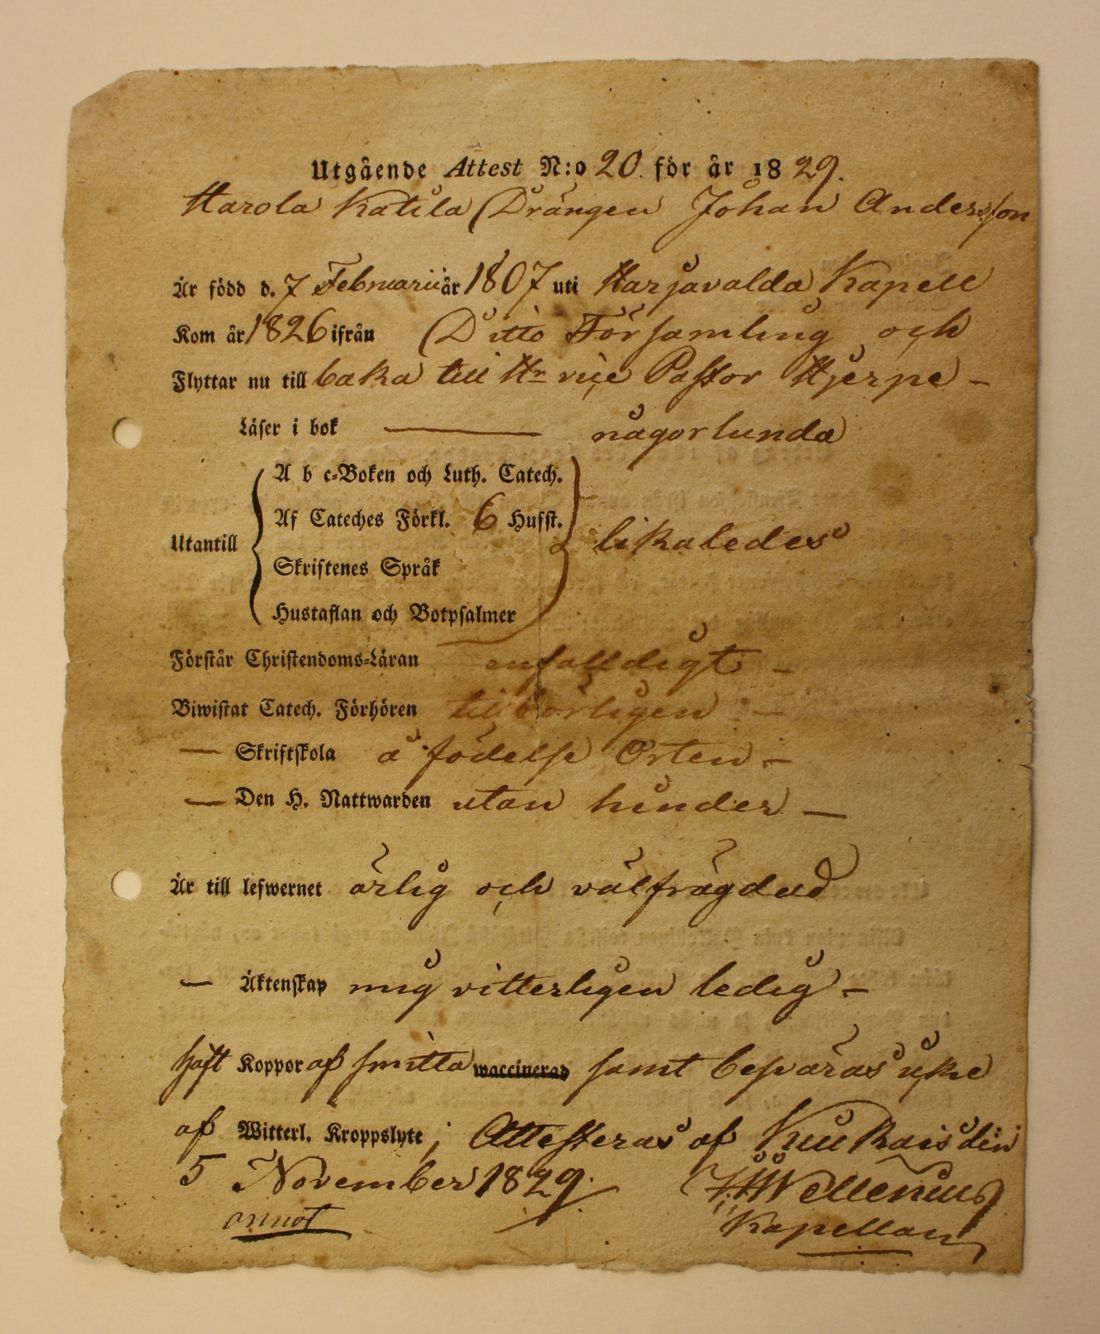 Utgående Attest N:o 20. för år 1829.
Harola Katila Drängen Johan Andersson
Är född d. 7 Februarii år 1807 uti Harjavalda Kapell
Kom år 1826 ifrån Ditto Församling och
Flyttar nu till baka till Hr vice Pastor Hjerpe –
Läser i bok — någorlunda
A b c-Boken och Luth. Catech.
Af Cateches Förkl. 6 Hufst.
Utantill likaledes
Skriftenes Språk
Hustaflan och Botpsalmer
Förstår Christendoms-Läran enfalldigt –
Biwistat Catech. Förhören tillbörligen –
— Skriftskola å födelse Orten –
— Den H. Nattwarden utan hinder —
Är till lefwernet ärlig och välfrägdad
— Äktenskap mig vitterligen ledig –
haft Koppor af smitta waccinerad samt besväras icke
af Witterl. Kroppslyte; Attesteras af Kiukais den
5 November 1829.
annot Kapellan